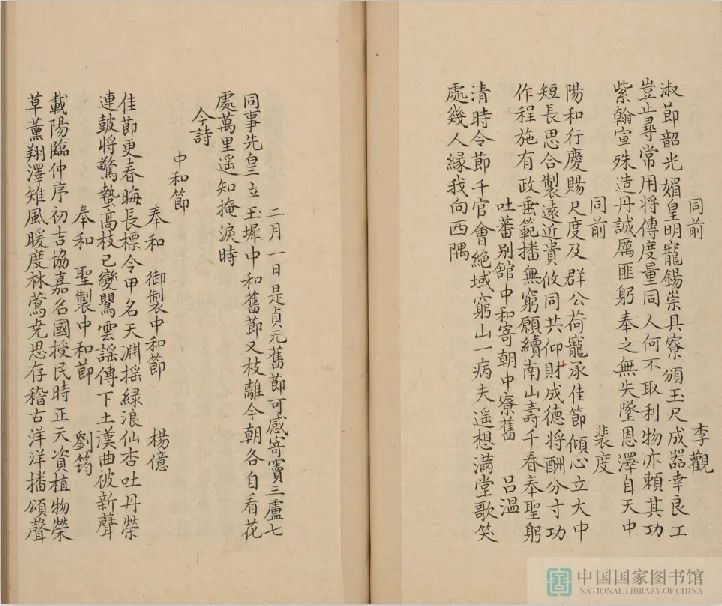 同前
李觀
淑節韶光媚皇明寵錫崇具寮頒玉尺成器幸良工
豈止尋常用將傳度量同人何不取利物亦賴其功
紫翰宣殊造丹誠厲匪躬奉之無失墜恩澤自天中
同前
裴度
陽和行慶賜尺度及群公荷寵承佳節傾心立大中
短長思合製遠近貴攸同共仰財成德將酬分寸功
作程施有政垂範播無窮願續南山壽千春奉聖躬
吐蕃別館中和寄朝中寮舊
吕温
清時令節千官會絶域窮山一病夫遥想滿堂歌笑
處幾人緣我向西隅
二月一日是貞元舊節可感寄竇三盧七
同事先皇立玉墀中和舊節又枝離今朝各自看花
處萬里遥知掩淚時
今詩
中和節
奉和御製中和節
楊億
佳節更春晦長標令甲名天淵摇緑浪仙杏吐丹榮
連鼓將驚蟄高枝已變鸎雲謡傳下土漢曲破新聲
奉和聖製中和節
劉筠
載陽臨仲序初吉協嘉名國授民時正天資植物榮
草薰翔澤雉風暖度林鶯堯思存稽古洋洋播頌聲
中国国家图书馆
NATIONAL LIBRARY OF CHINA